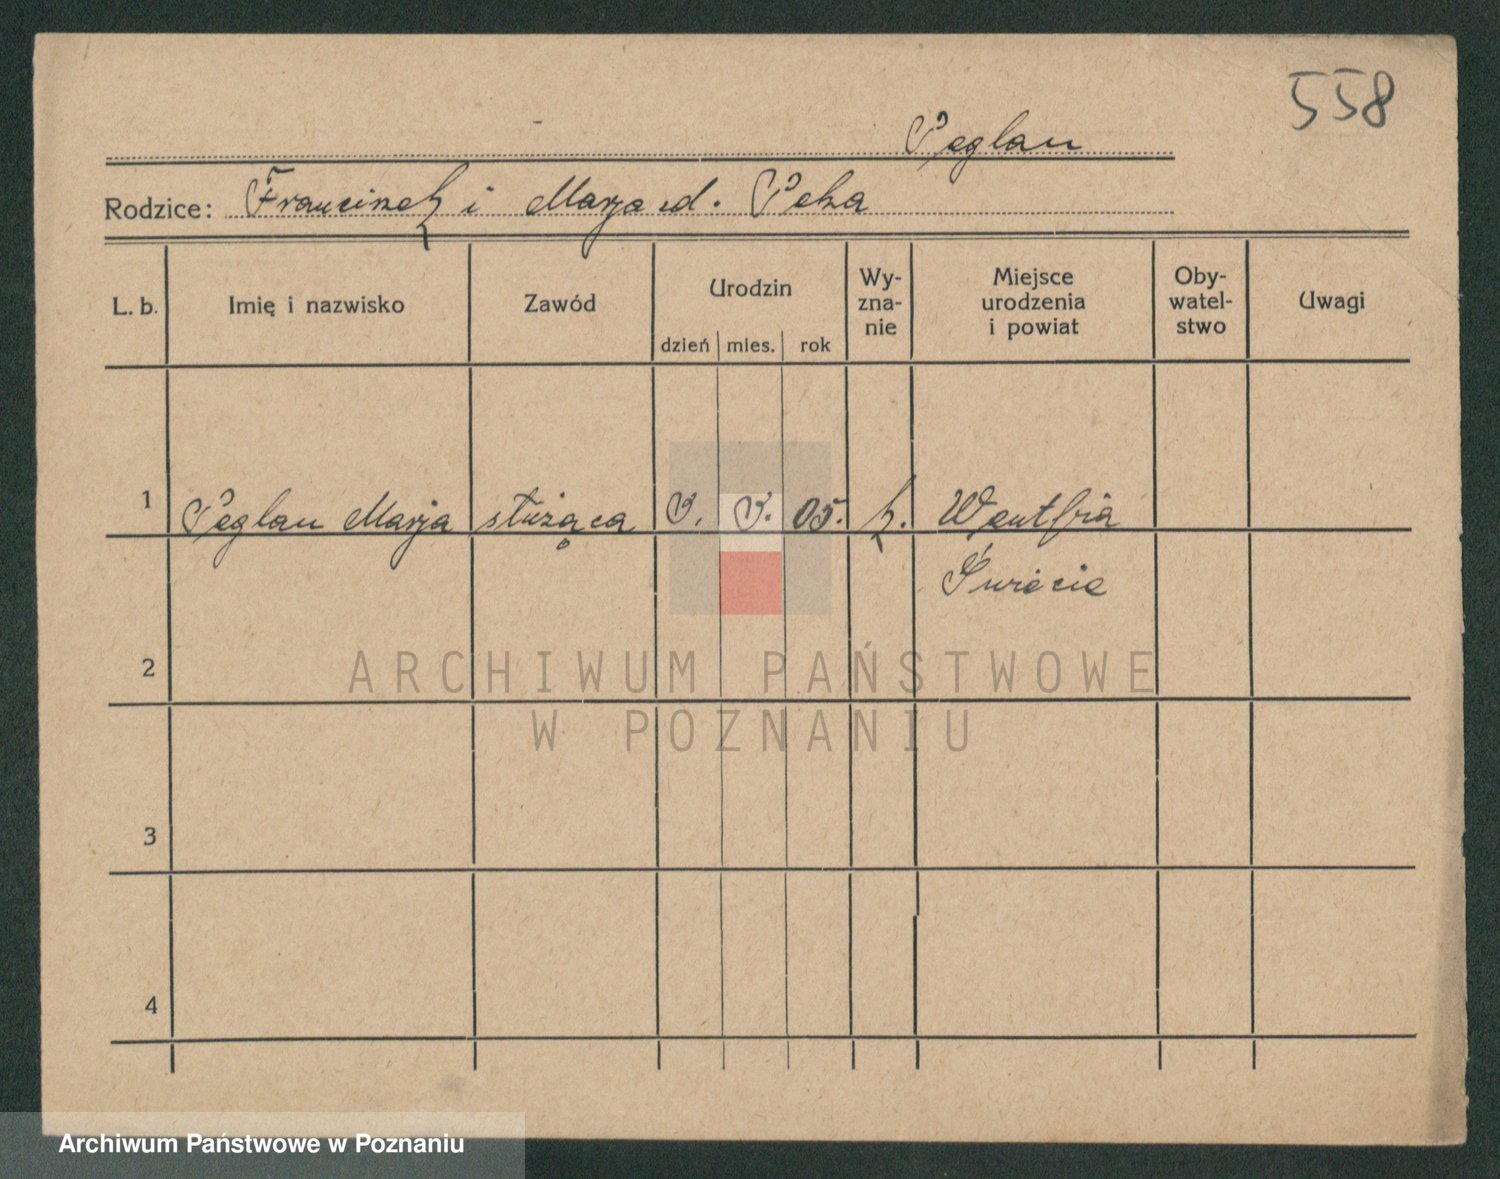 558
Peglau
Rodzice: Franciszek i Marja d. Peka
L. b. Imię i nazwisko Zawód Urodzin dzień mies. rok Wy-zna-nie Miejsce urodzenia i powiat Oby-watel-stwo Uwagi
1 Peglau Marja służąca 3. 3. 05. k. Wentfia
Świecie
2
ARCHIWUM PAŃSTWOWE
W POZNANIU
3
4
Archiwum Państwowe w Poznaniu